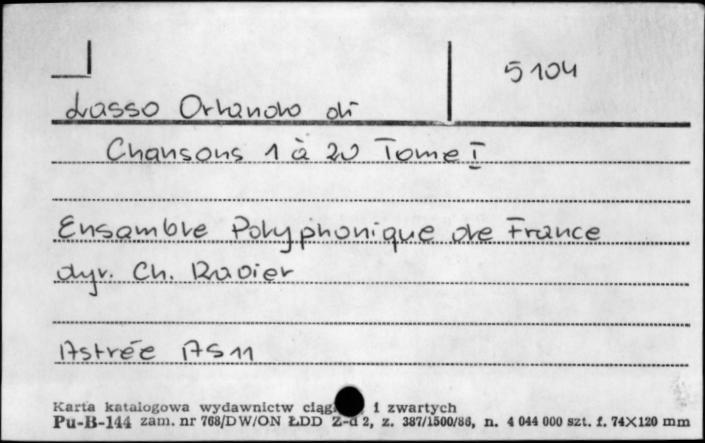 5104
Lasso Orlando di
Chansons 1 à 20 Tome I
Ensamble Polyphonique de France
dyr. Ch. Ravier
Astrée AS 11
Karta katalogowa wydawnictw i zwartych
Pu-B-144 zam. nr 768/DW/ON ŁDD Z-d 2, z. 387/1500/86, n. 4 044 000 szt. f. 74×120 mm